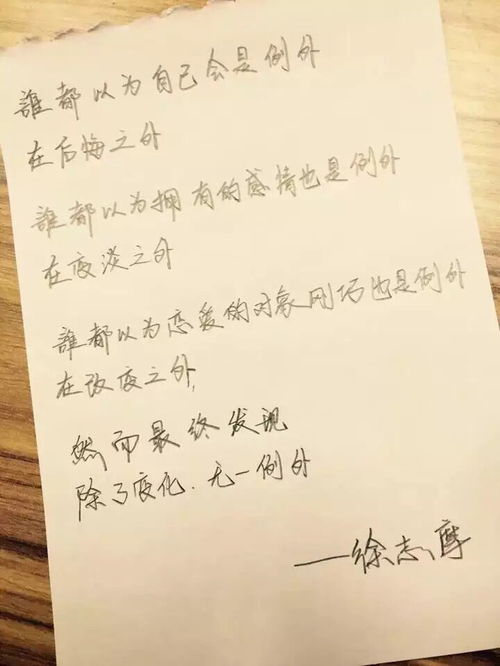 誰都以为自己会是例外
在后悔之外
誰都以为拥有的感情也是例外
在变淡之外
誰都以为恋爱的对象刚巧也是例外
在改变之外,
然而最终发现
除了变化.无一例外
——徐志摩